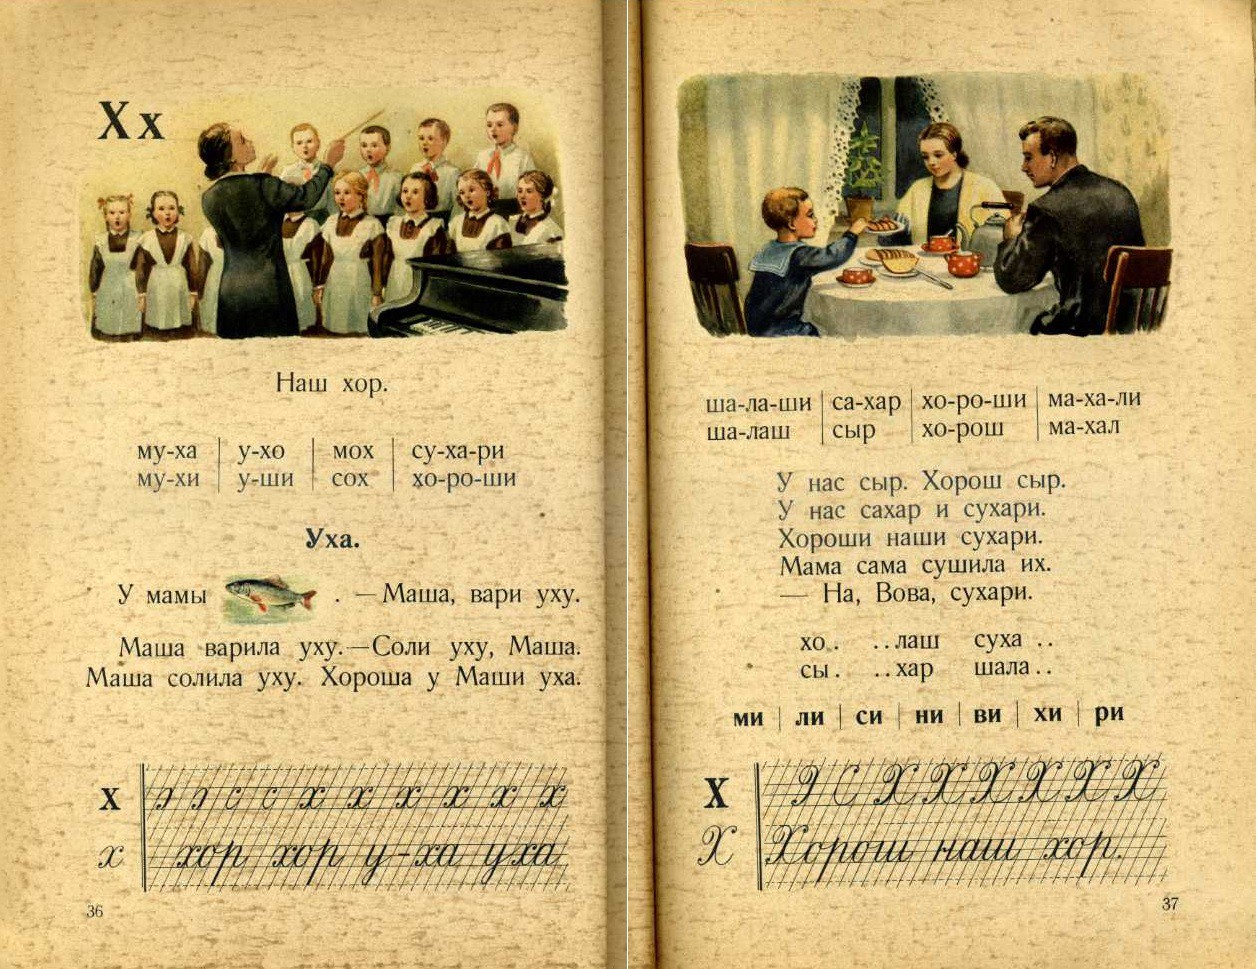 Хх
Наш хор.
му-ха | у-хо | мох | су-ха-ри
му-хи | у-ши | сох | хо-ро-ши
Уха.
У мамы . — Маша, вари уху.
Маша варила уху. — Соли уху, Маша.
Маша солила уху. Хороша у Маши уха.
х э э с с х х х х х х
х хор хор у-ха уха
36
ша-ла-ши | са-хар | хо-ро-ши | ма-ха-ли
ша-лаш | сыр | хо-рош | ма-хал
У нас сыр. Хорош сыр.
У нас сахар и сухари.
Хороши наши сухари.
Мама сама сушила их.
— На, Вова, сухари.
хо . . . лаш суха . .
сы . . . хар шала . .
ми | ли | си | ни | ви | хи | ри
Х Э С Х Х Х Х Х Х
Х Хорош наш хор.
37